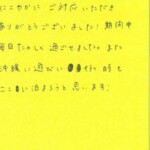 にこやかに ご対応 いただき
ありがとうございました! 期間中
毎日たのしく 過ごせました。また
沖縄に遊びに 行く時も
ここに泊まろうと思います!